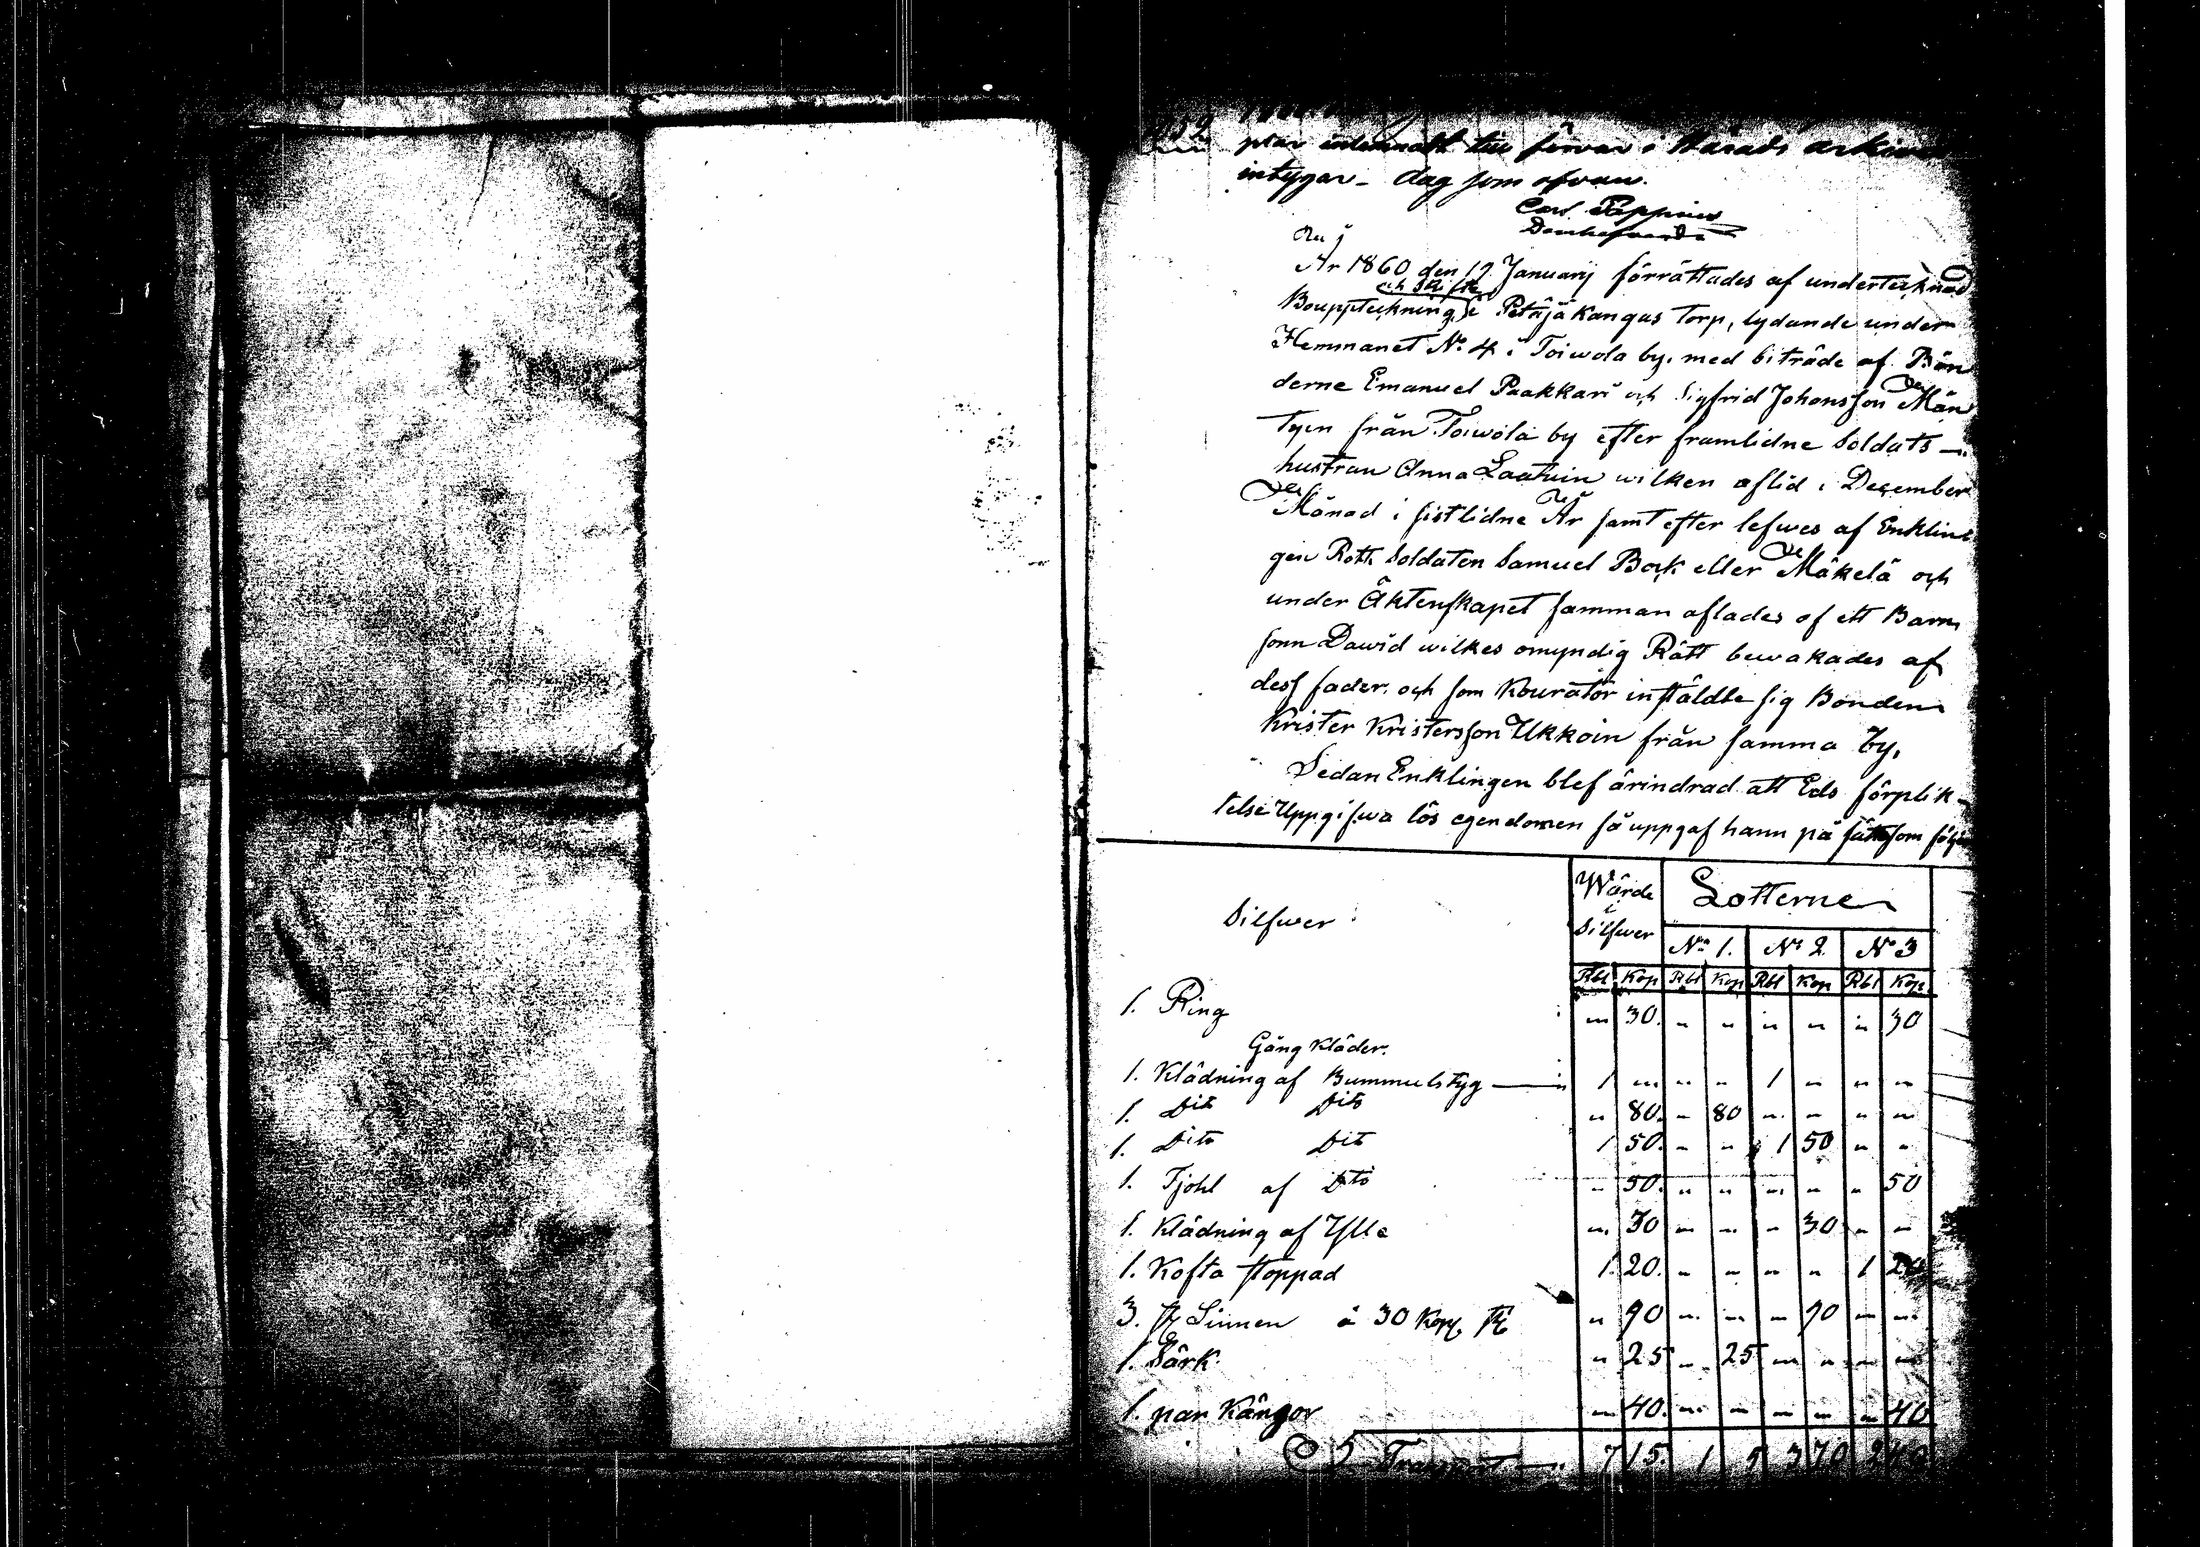 intygar – dag som ofvan.
År 1860 den 19 Januarij förrättades af undertecknad
Bouppteckning i Petäjäkangas Torp, lydande under
Hemmanet No 4 i Toiwola by, med biträde af Bön
derne Emanuel Paakkari och Sigfrid Johansson Män
tyen från Toiwola by efter framlidne Soldats –
hustrun Anna Laatuin wilken aflid i December
Månad i sistlidne År samt efter lefwes af Enklin
gen Rott. Soldaten Samuel Bock eller Mäkelä och
under Äktenskapet samman aflades af ett Barn
sonn Dawid wilkes omyndig Rätt bewakades af
dess fader, och som Kourator instäldte sig Bonden
Krister Kristersson Ukkoin från samma by,
Sedan Enklingen blef ärindrad att Eds förplik-
telse Uppgifwa lös egendomen så uppgaf hann på sätt som föl
Silfwer Wärde i Silfwer Lotterne
No 1. No 2 No 3
Rbl Kop Rbl Kop Rbl Kop Rbl Kop
1. Ring " 30. " " " " " 30
Gång Kläder.
1. Klädning af Bummulstyg — 1 " " " 1 " " "
1. Dito Dito " 80. " 80 " " " "
1. Dito Dito 1 50. " " 1 50 " "
1. Tjohl af Dito " 50. " " " " " 50
1. Klädning af Ylle " 30 " " " 30 " "
1. Kofta stoppad 1. 20. " " " " 1 20
3. st Linnen á 30 Kop. st " 90 " " " 90 " "
1. Särk " 25 " 25 " " " "
1. par Kängor " 40. " " " " " 40
Transport — 7 15. 1 5 3 70 2 40